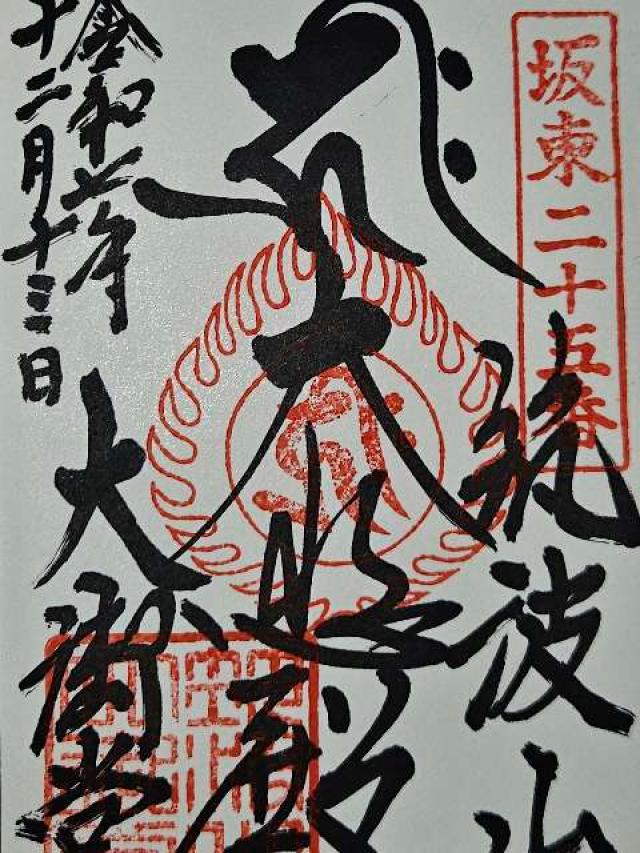 坂東二十五番
筑波山
大悲殿
大御堂
令和六年
十二月十三日